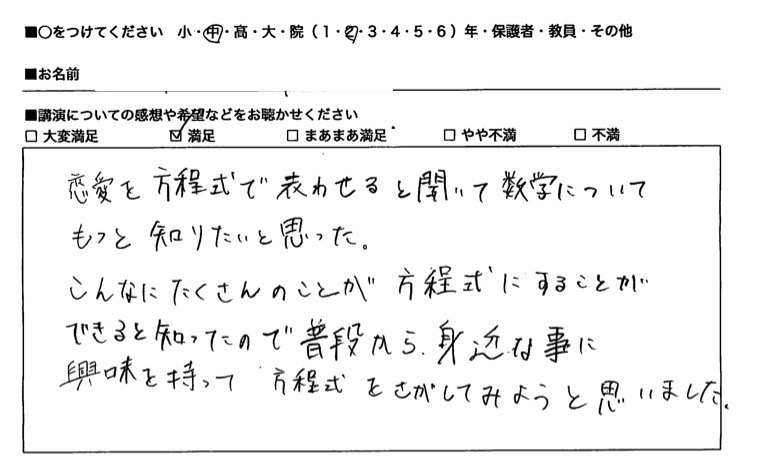 ■○をつけてください 小・中・高・大・院（1・2・3・4・5・6）年・保護者・教員・その他
■お名前
■講演についての感想や希望などをお聴かせください
□ 大変満足 ☑ 満足 □ まあまあ満足 □ やや不満 □ 不満
恋愛を方程式で表わせると聞いて数学について
もっと知りたいと思った。
こんなにたくさんのことが方程式にすることが
できると知ったので普段から、身近な事に
興味を持って方程式をさがしてみようと思いました。